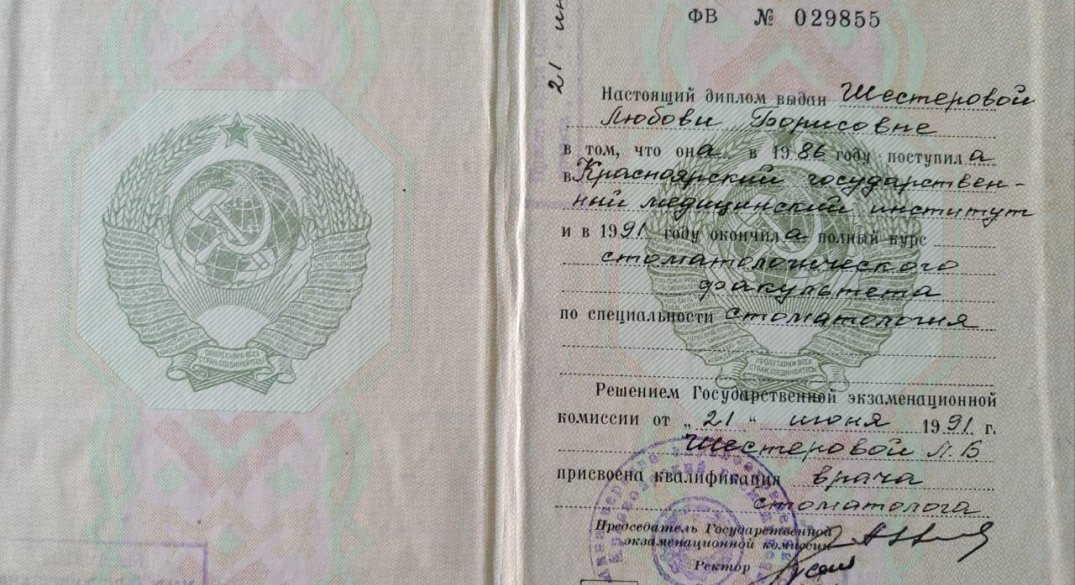 ПРОЛЕТАРИИ ВСЕХ
СТРАН, СОЕДИНЯЙТЕСЬ!
21
ФВ № 029855
Настоящий диплом выдан Шестеровой
Любови Борисовне
в том, что она в 1986 году поступила
в Красноярский государствен-
ный медицинский институт
и в 1991 году окончила полный курс
стоматологического
факультета
по специальности стоматология
Решением Государственной экзаменационной
комиссии от „21“ июня 1991 г.
Шестеровой Л.Б
присвоена квалификация врача
стоматолога
Председатель Государственной
экзаменационной комиссии
Ректор